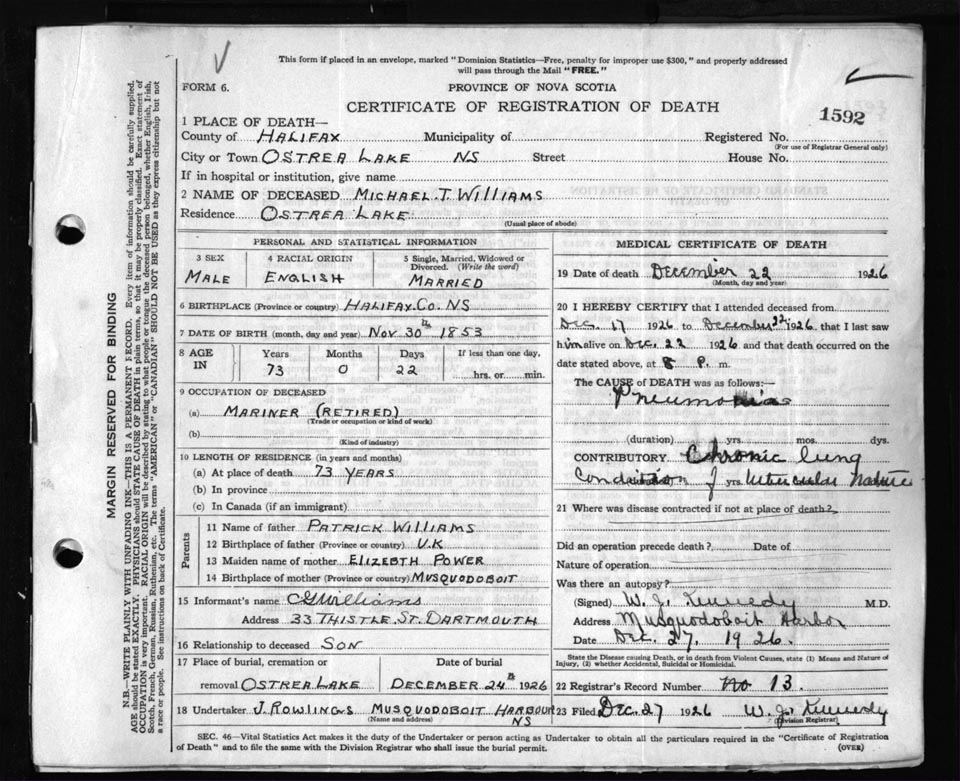 This form if placed in an envelope, marked "Dominion Statistics—Free, penalty for improper use $300," and properly addressed
will pass through the Mail "FREE."
FORM 6.
PROVINCE OF NOVA SCOTIA
CERTIFICATE OF REGISTRATION OF DEATH
1592
1 PLACE OF DEATH—
County of HALIFAX Municipality of Registered No.
(For use of Registrar General only)
City or Town OSTREA LAKE NS Street House No.
If in hospital or institution, give name
2 NAME OF DECEASED MICHAEL.T.WILLIAMS
Residence OSTREA LAKE
(Usual place of abode)
PERSONAL AND STATISTICAL INFORMATION
3 SEX
MALE
4 RACIAL ORIGIN
ENGLISH
5 Single, Married, Widowed or
Divorced. (Write the word)
MARRIED
6 BIRTHPLACE (Province or country) HALIFAX.CO.NS
7 DATE OF BIRTH (month, day and year) NOV 30th 1853
8 AGE
IN
Years
73
Months
0
Days
22
If less than one day,
hrs. or min.
9 OCCUPATION OF DECEASED
(a) MARINER (RETIRED)
(Trade or occupation or kind of work)
(b)
(Kind of industry)
10 LENGTH OF RESIDENCE (in years and months)
(a) At place of death 73 YEARS
(b) In province
(c) In Canada (if an immigrant)
Parents
11 Name of father PATRICK WILLIAMS
12 Birthplace of father (Province or country) U.K
13 Maiden name of mother ELIZEBTH POWER
14 Birthplace of mother (Province or country) MUSQUODOBOIT
15 Informant's name Williams
Address 33 THISTLE.ST.DARTMOUTH
16 Relationship to deceased SON
17 Place of burial, cremation or
removal OSTREA LAKE
Date of burial
DECEMBER 24th 1926
18 Undertaker J.ROWLINGS MUSQUODOBOIT HARBOUR
(Name and address)
NS
MEDICAL CERTIFICATE OF DEATH
19 Date of death December 22 1926
(Month, day and year)
20 I HEREBY CERTIFY that I attended deceased from
Dec. 17 1926 to December 22 1926, that I last saw
him alive on Dec. 22 1926 and that death occurred on the
date stated above, at 8 P. m.
The CAUSE of DEATH was as follows:—
Pneumonia
(duration) yrs. mos. dys.
CONTRIBUTORY Chronic lung
Condition of yrs. tubercular nature
21 Where was disease contracted if not at place of death?
Did an operation precede death? Date of
Nature of operation
Was there an autopsy?
(Signed) W. J. Kennedy M.D.
Address Musquodoboit Harbor
Date Dec. 27, 1926.
State the Disease causing Death, or in death from Violent Causes, state (1) Means and Nature of
Injury, (2) whether Accidental, Suicidal or Homicidal.
22 Registrar's Record Number No 13.
23 Filed Dec. 27 1926 W. J. Kennedy
(Division Registrar)
SEC. 46—Vital Statistics Act makes it the duty of the Undertaker or person acting as Undertaker to obtain all the particulars required in the "Certificate of Registration
of Death" and to file the same with the Division Registrar who shall issue the burial permit.
(OVER)
MARGIN RESERVED FOR BINDING
N.B.—WRITE PLAINLY WITH UNFADING INK—THIS IS A PERMANENT RECORD. Every item of information should be carefully supplied.
AGE should be stated EXACTLY. PHYSICIANS should STATE CAUSE OF DEATH in plain terms, so that it may be properly classified. Exact statement of
OCCUPATION is very important. RACIAL ORIGIN will be described by stating to what people or tongue the deceased person belonged, whether English, Irish,
Scotch, French, German, Russian, Ruthenian, etc. The terms "AMERICAN" or "CANADIAN" SHOULD NOT BE USED as they express citizenship but not
a race or people. See instructions on back of Certificate.